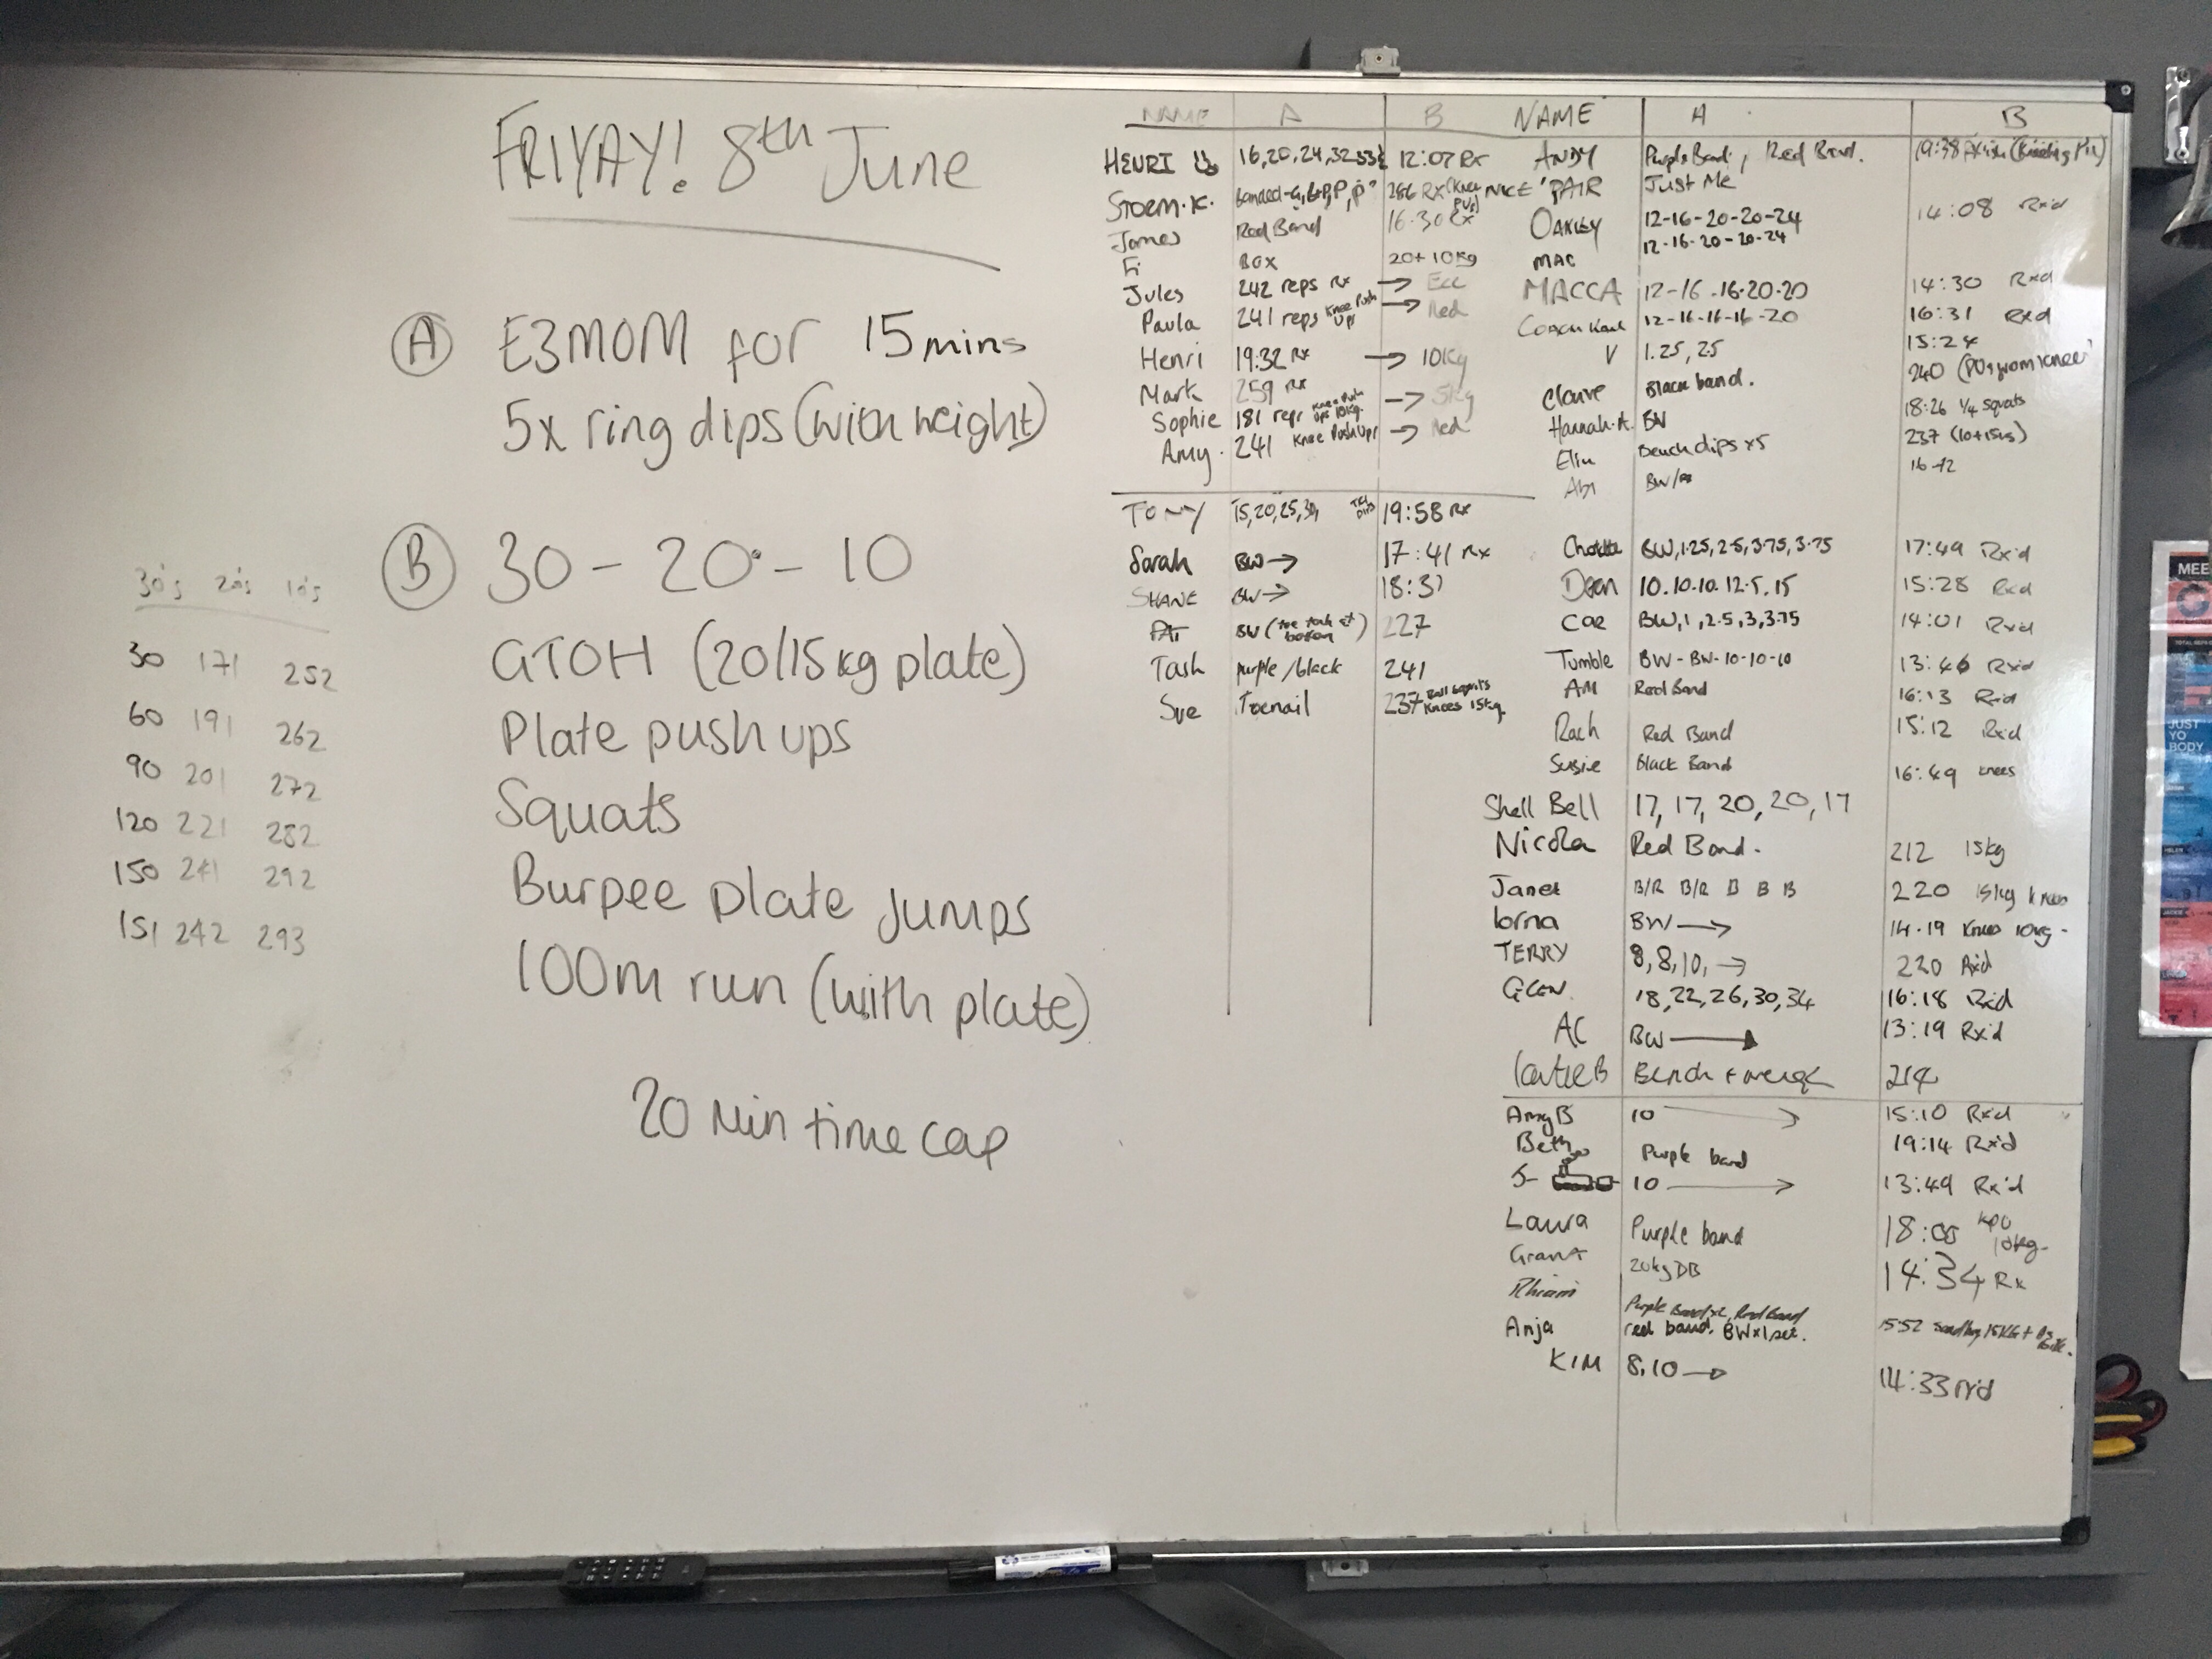 FRIYAY! 8th June
A E3MOM for 15 mins
5x ring dips (with weight)
B 30 - 20 - 10
GTOH (20/15kg plate)
Plate push ups
Squats
Burpee plate jumps
100m run (with plate)
20 Min time cap
30's 20's 10's
30 171 252
60 191 262
90 201 272
120 221 282
150 241 292
151 242 293
NAME A B
HENRI 16,20,24,32 12:07 Rx
Storm.K. Banded 286 Rx (Knee PUs)
James Red Band 16:30 Rx
Fi Box 20+10kg
Jules 242 reps Rx →
Paula 241 reps Knee Push Ups → Red
Henri 19:32 Rx → 10kg
Mark 259 Rx → 5kg
Sophie 181 reps Knee Push Ups 10kg.
Amy. 241 Knee Push Ups → Red
TONY 15,20,25,30, 19:58 Rx
Sarah BW → 17:41 Rx
SHANE BW →
PAT BW 227
Tash purple/black 241
Sue Toenail 237 Knees 15kg
NAME A B
ANDY Purple Band, Red Band.
NICE 'PAIR Just Me
OAKLEY 12-16-20-20-24 14:08 Rx'd
MAC 12-16-20-20-24
MACCA 12-16-16-20-20 14:30 Rxd
Coach Karl 12-16-16-16-20 16:31 Rxd
V 1.25, 2.5 15:24
Claire Black band. 240 (PUs from knee)
Hannah.A. BW 18:26 1/4 squats
Elin Bench dips x5 237 (10+15kg)
Abi BW
BW, 1.25, 2.5, 3.75, 3.75 17:49 Rx'd
Dean 10.10.10.12.5.15 15:28 Rxd
Cae BW, 1, 2.5, 3, 3.75 14:01 Rxd
Tumble BW-BW-10-10-10 13:46 Rx'd
AM Red Band 16:13 Rxd
Rach Red Band 15:12 Rxd
Susie Black Band 16:49 knees
Shell Bell 17, 17, 20, 20, 17
Nicola Red Band. 212 15kg
Janet B/R B/R B B B 220 15kg Knees
lorna BW → 14.19 Knees 10kg
TERRY 8,8,10, → 220 Rx'd
GLEN 18,22,26,30,34 16:18 Rxd
AC BW → 13:19 Rx'd
Katie B Bench + 214
Amy B 10 → 15:10 Rxd
Beth Purple band 19:14 Rx'd
J- 10 → 13:49 Rx'd
Laura Purple band KPU 10kg
Grant 20kg DB 14:34 Rx
Rhian Purple Band x2, Red Band
Anja red band, BW x 1 set. 15:52
KIM 8,10 → 14:33 rx'd
MEE
JUST
YO
BODY